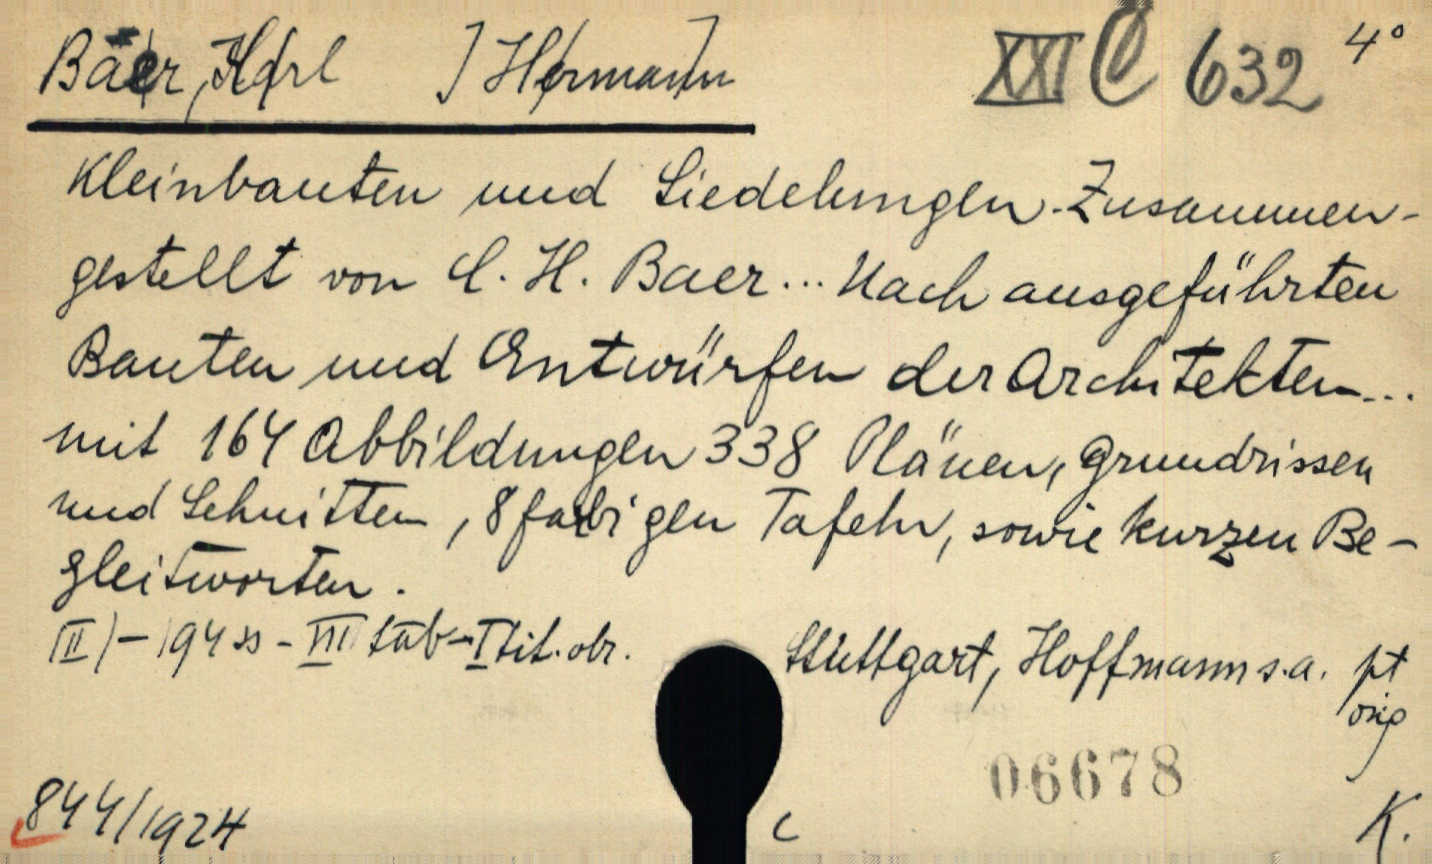 Baer, Karl ] Hermann XXI C 632 4°
Kleinbauten und Siedelungen. Zusammen-
gestellt von C. H. Baer... Nach ausgeführten
Bauten und Entwürfen der Architekten...
mit 164 Abbildungen 338 Plänen, Grundrissen
und Schnitten, 8 farbigen Tafeln, sowie kurzen Be-
gleitworten.
(II) - 194 ss - VII tab - I tit. obr. Stuttgart, Hoffmann s.a. pt
orig
06678
844/1924 c K.